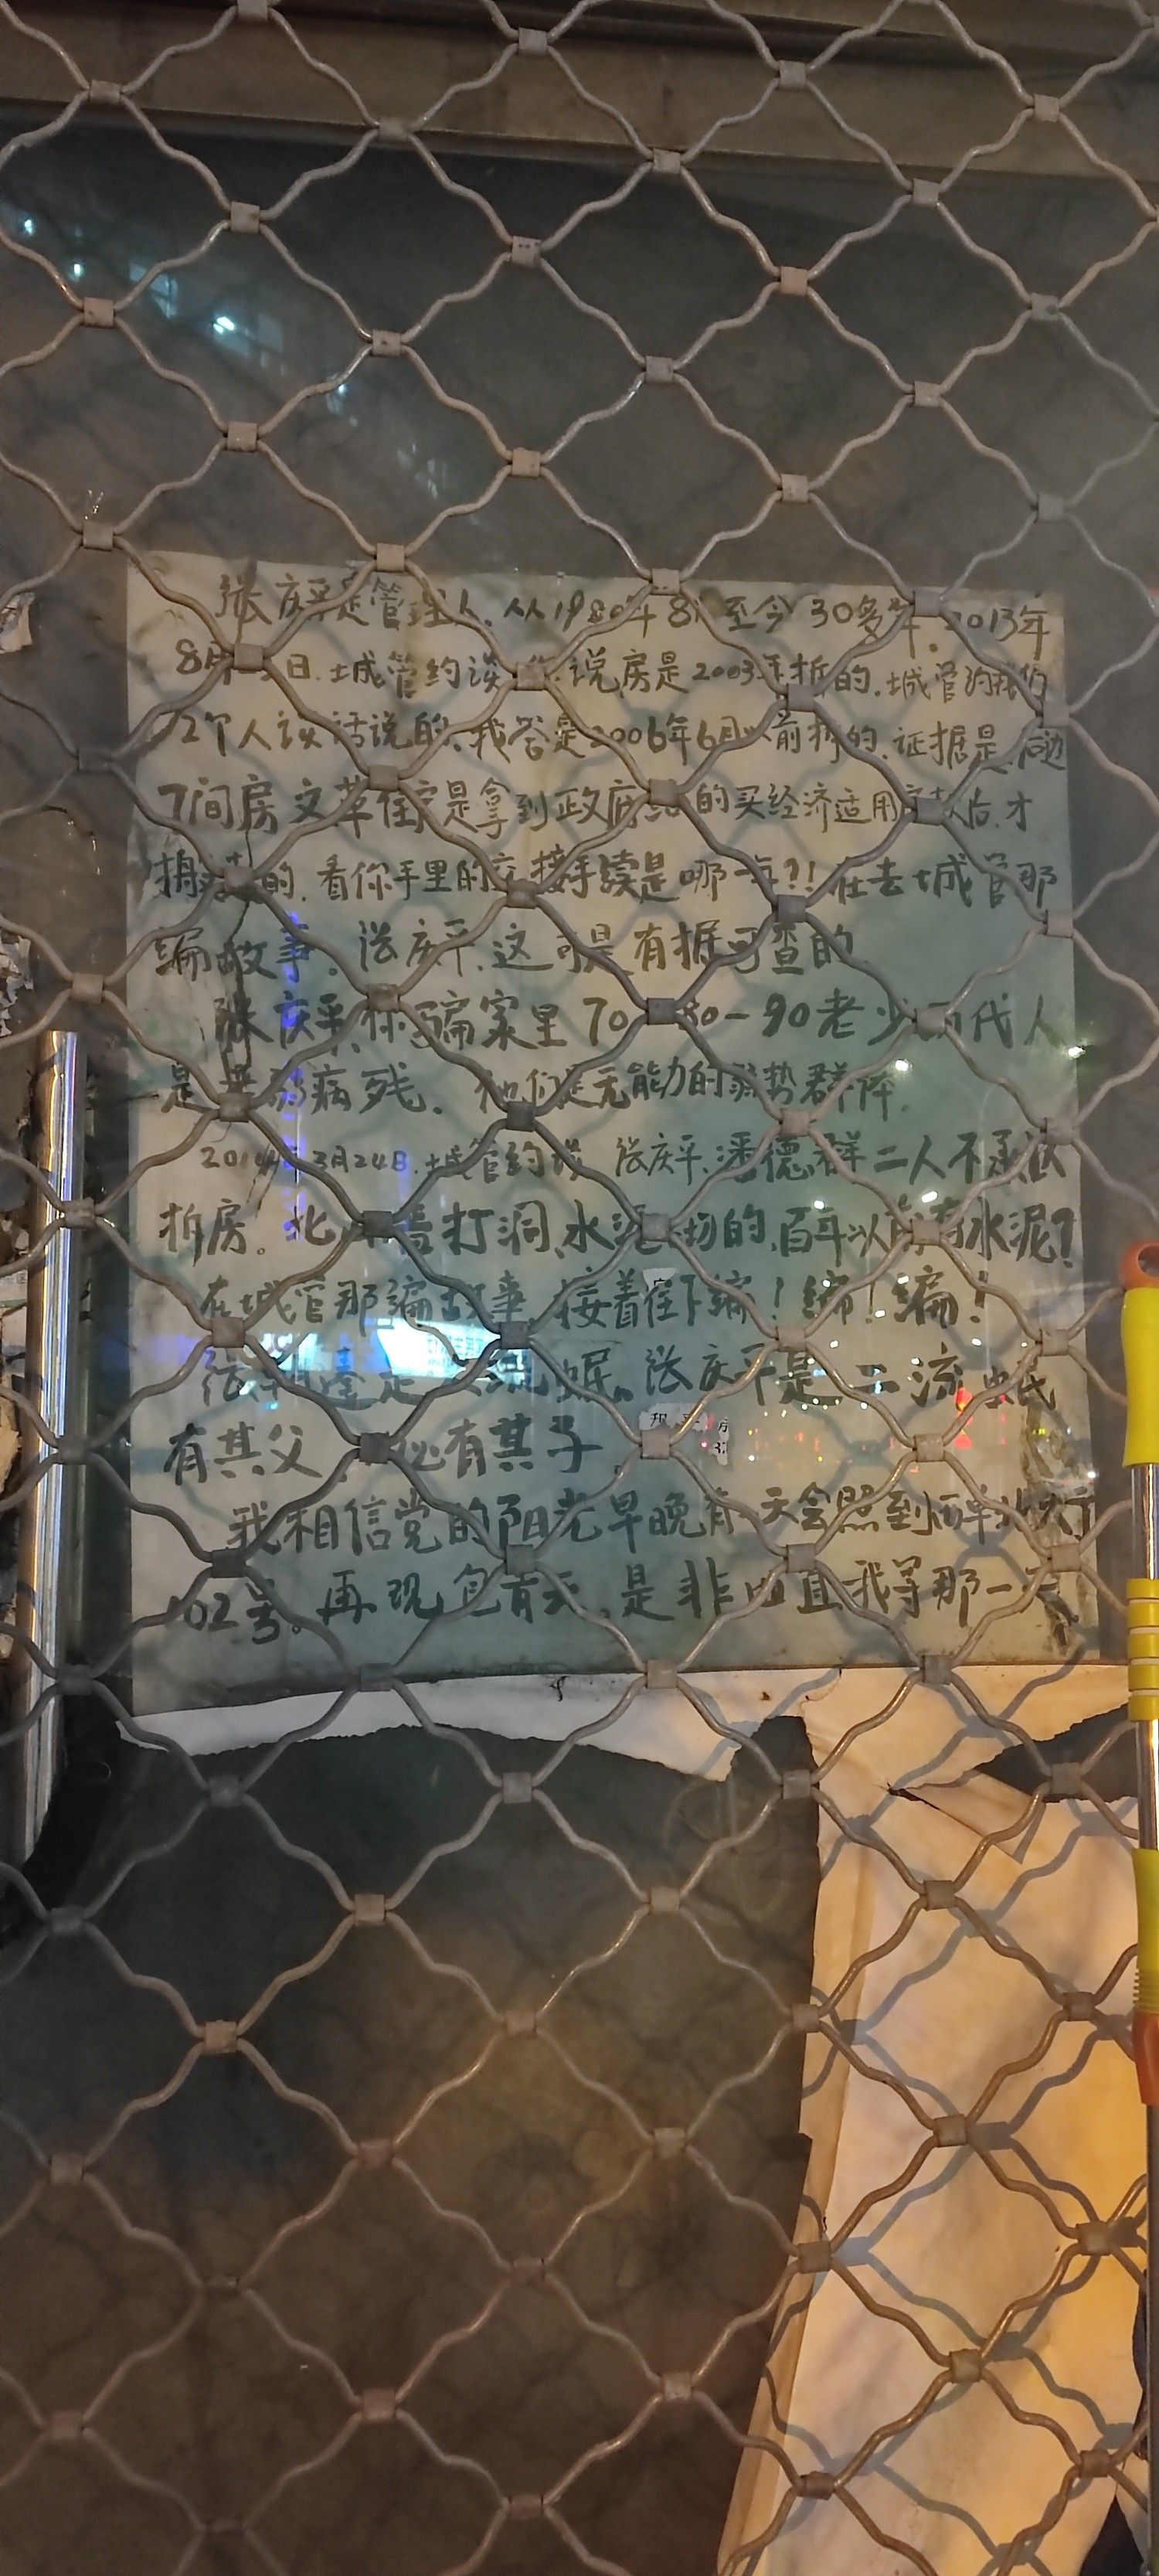 张庆平是管理人、从1980年8 至今30多年。2013年
8月 日.城管约谈 你说房是2003年拆的.城管约我们
2个人谈话说的、我答是2006年6月以前拆的.证据是后边
7间房文革住户是拿到政府给的买经济适用房款后.才
搬走的.看你手里的交接手续是哪一年?!在去城管那
编故事。张庆平、这可是有据可查的.
张庆平、你骗家里70 80-90老少 代人
是 病残、他们是无能力的弱势群体.
2014年3月24日.城管约谈 张庆平、潘德群二人不承认
拆房。北 打洞、水泥 的、百年以前有水泥?
在城管那编故事 接着往下编!编!编!
张 是 流氓。张庆平是二流氓
有其父、必有其子
我相信党的阳光早晚有一天会照到西单北大
102号。再现包青天、是非曲直我等那一天